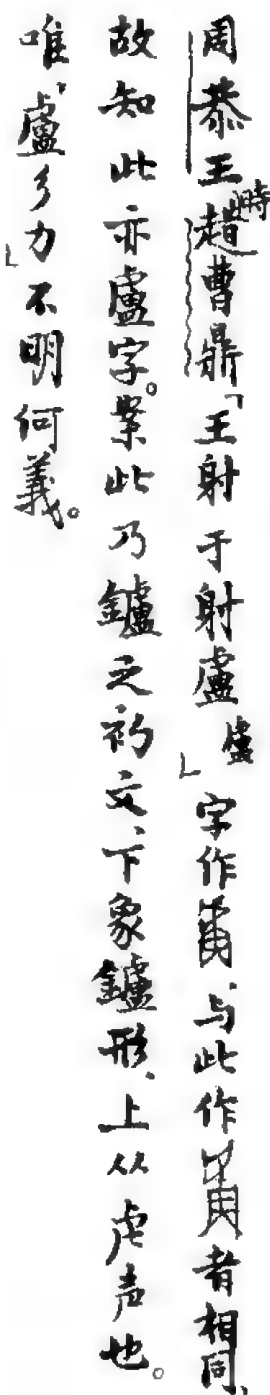 周恭王時趞曹鼎「王射于射盧」盧字作與此作者相同、
故知此亦盧字。案此乃鑪之初文、下象鑪形、上从虍声也。
唯「盧彡力」不明何義。